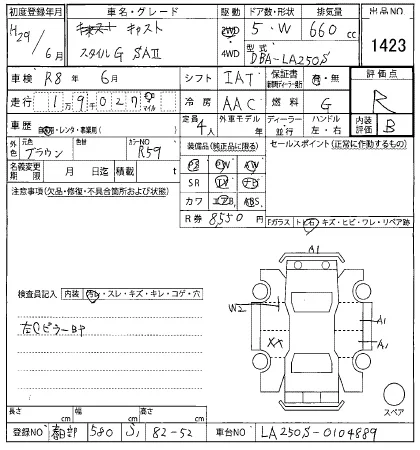 初度登録年月 車名・グレード 駆動 ドア数・形状 排気量 出品NO
H29/6月 キャスト 2WD 5・W 660cc 1423
スタイルG SAⅡ 4WD 型式 DBA-LA250S
車検 R8年 6月 シフト IAT 保証書 有・無 評価点
走行 19027 km マイル 冷房 AAC 燃料 G R
車歴 自家用・レンタ・事業用( ) 定員 4人 外車モデル 年 ディーラー 並行 ハンドル 左・右 内装評価 B
外色 元色 ブラウン 色替 カラーNO R59 装備品(純正品に限る) セールスポイント(正常に作動するもの)
名義変更期限 月 日迄 積載 t PS PW AW
注意事項(欠品・修復・不具合箇所および状態) SR ナビ
カワ エアB ABS
R券 8550円 Fガラス トビ石・キズ・ヒビ・ワレ・リペア跡
A1
検査員記入 内装 汚レ・スレ・キズ・キレ・コゲ・穴
W2
左Cピラー
XX A1
A1
スペア
長さ cm 幅 cm 高さ cm
登録NO 春日部 580 82-52 車台NO LA250S-0104889